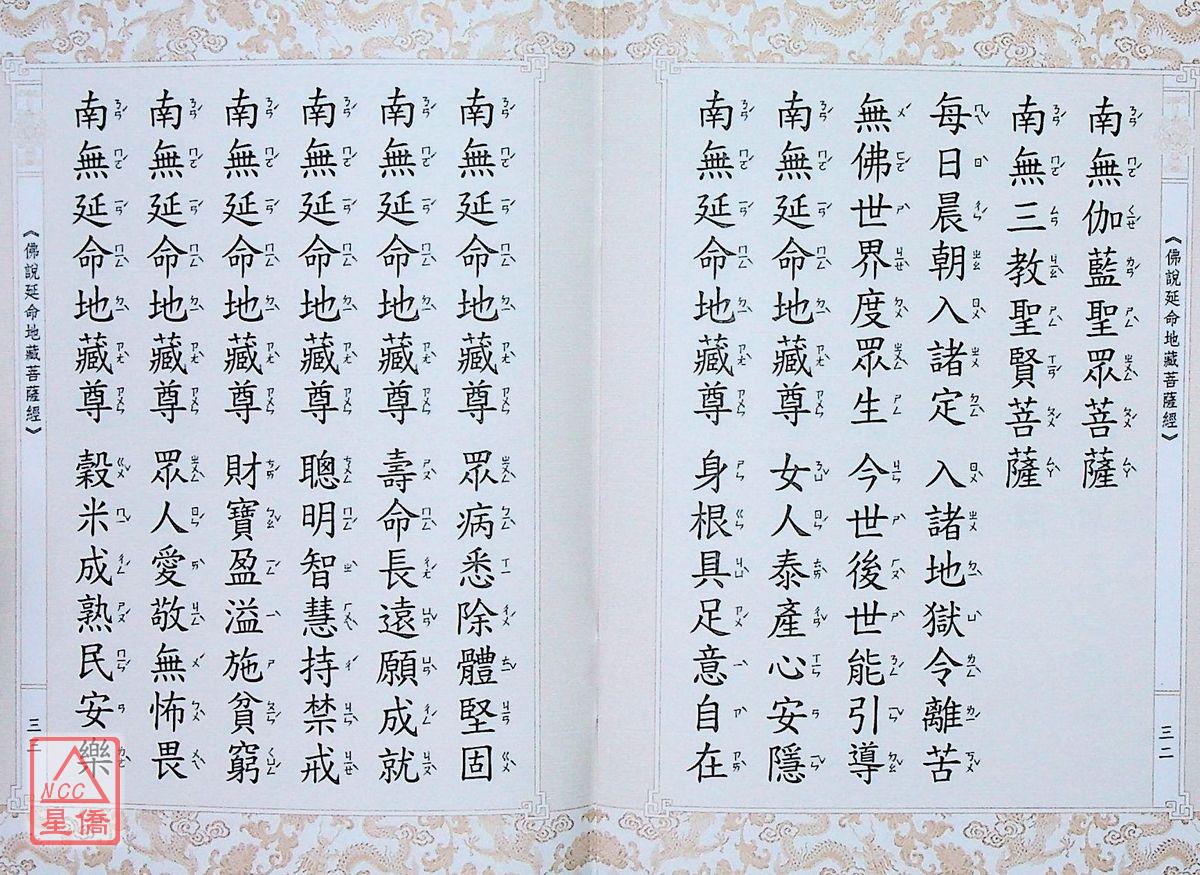 《佛說延命地藏菩薩經》
三二
南無伽藍聖眾菩薩
南無三教聖賢菩薩
每日晨朝入諸定 入諸地獄令離苦
無佛世界度眾生 今世後世能引導
南無延命地藏尊 女人泰產心安隱
南無延命地藏尊 身根具足意自在
南無延命地藏尊 眾病悉除體堅固
南無延命地藏尊 壽命長遠願成就
南無延命地藏尊 聰明智慧持禁戒
南無延命地藏尊 財寶盈溢施貧窮
南無延命地藏尊 眾人愛敬無怖畏
南無延命地藏尊 穀米成熟民安樂
《佛說延命地藏菩薩經》
三三
NCC
星僑